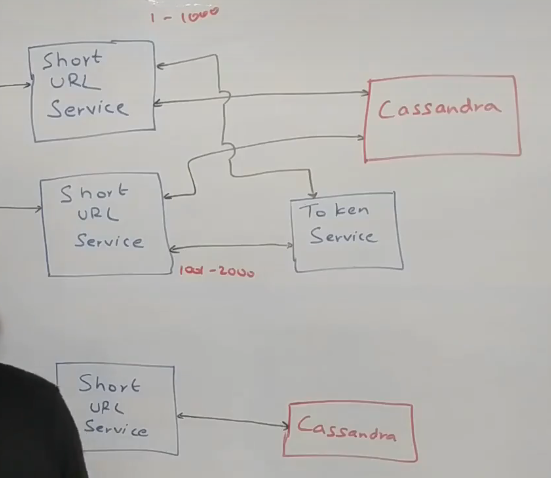 1 - 1000
Short
URL
Service
Cassandra
Short
URL
Service
Token
Service
1001 - 2000
Short
URL
Service
Cassandra